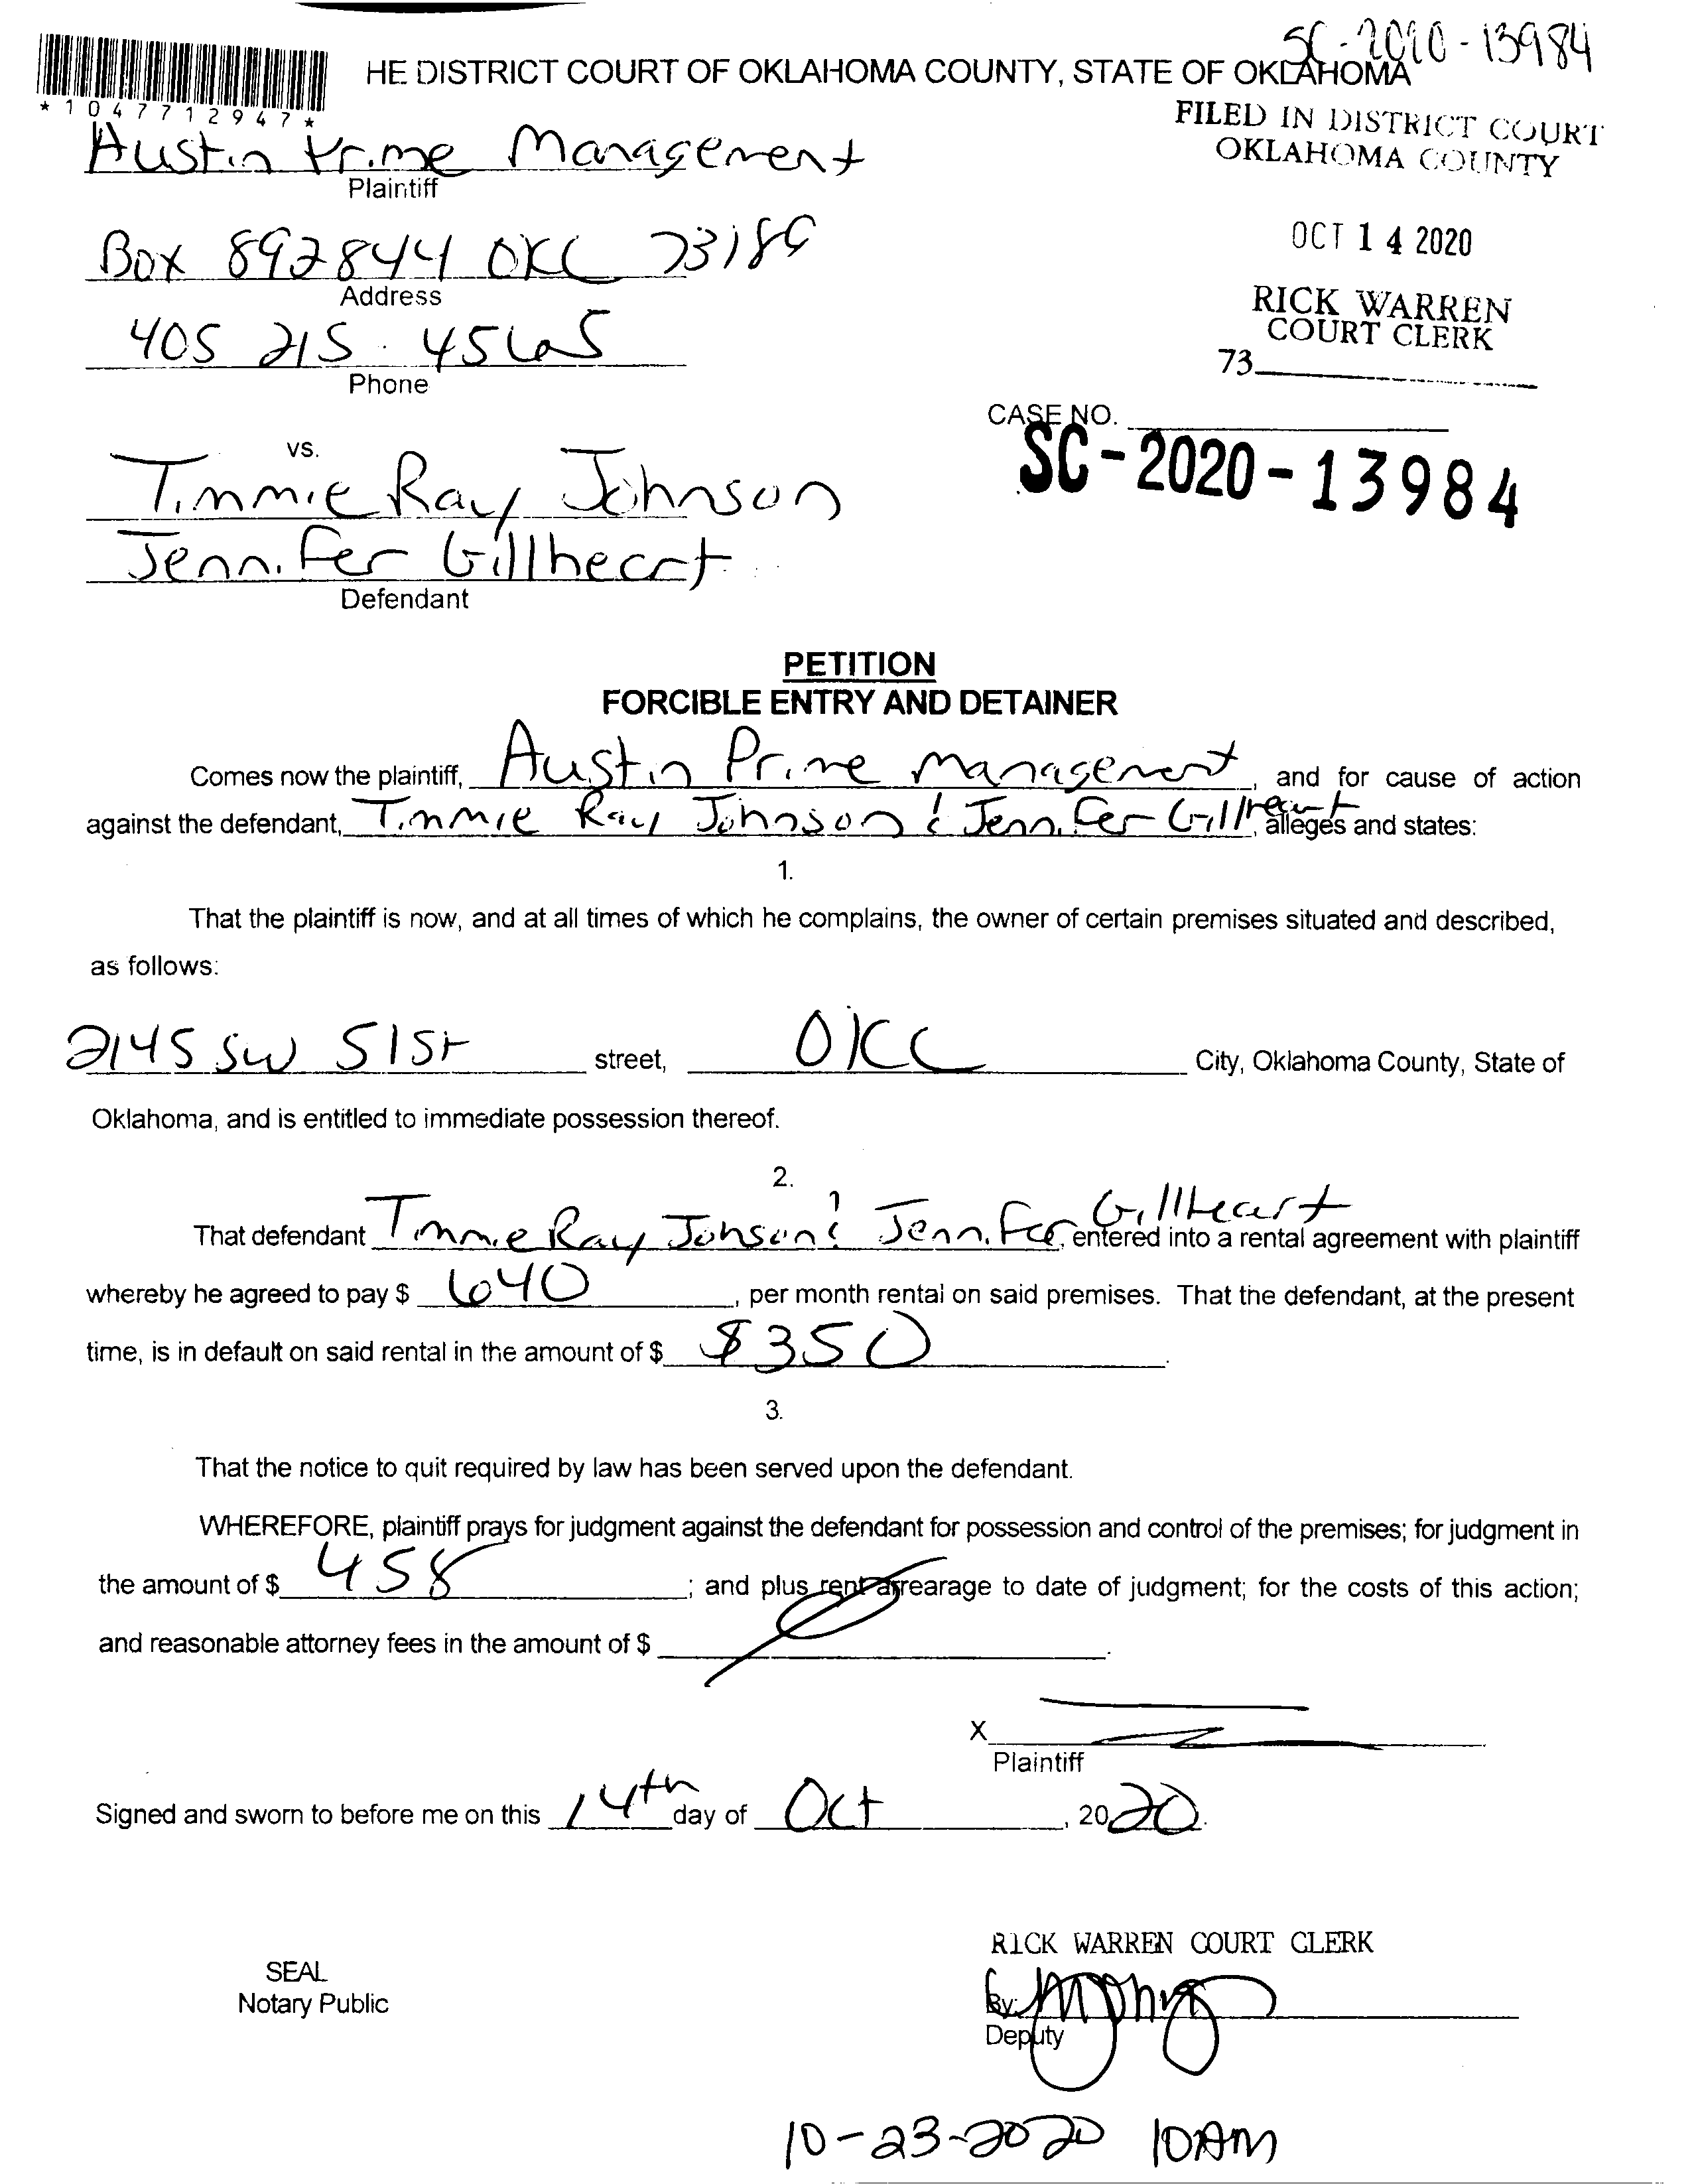 SC-2020-13984
HE DISTRICT COURT OF OKLAHOMA COUNTY, STATE OF OKLAHOMA
*1047712947*
FILED IN DISTRICT COURT
OKLAHOMA COUNTY
Austin Prime Management
Plaintiff
OCT 14 2020
Box 892844 OKC 73189
Address
RICK WARREN
COURT CLERK
405 215. 4565
Phone
73
CASE NO.
SC-2020-13984
vs.
Timmie Ray Johnson
Jennifer Gillheart
Defendant
PETITION
FORCIBLE ENTRY AND DETAINER
Comes now the plaintiff, Austin Prime Management, and for cause of action
against the defendant, Timmie Ray Johnson & Jennifer Gillheart, alleges and states:
1.
That the plaintiff is now, and at all times of which he complains, the owner of certain premises situated and described,
as follows:
2145 SW 51st street, OKC City, Oklahoma County, State of
Oklahoma, and is entitled to immediate possession thereof.
2.
That defendant Timmie Ray Johson & Jennifer Gillheart, entered into a rental agreement with plaintiff
whereby he agreed to pay $ 640, per month rental on said premises. That the defendant, at the present
time, is in default on said rental in the amount of $ $350.
3.
That the notice to quit required by law has been served upon the defendant.
WHEREFORE, plaintiff prays for judgment against the defendant for possession and control of the premises; for judgment in
the amount of $ 458; and plus rent arrearage to date of judgment; for the costs of this action;
and reasonable attorney fees in the amount of $
X
Plaintiff
Signed and sworn to before me on this 14th day of Oct, 2020.
RICK WARREN COURT CLERK
SEAL
Notary Public
By:
Deputy
10-23-2020 10AM